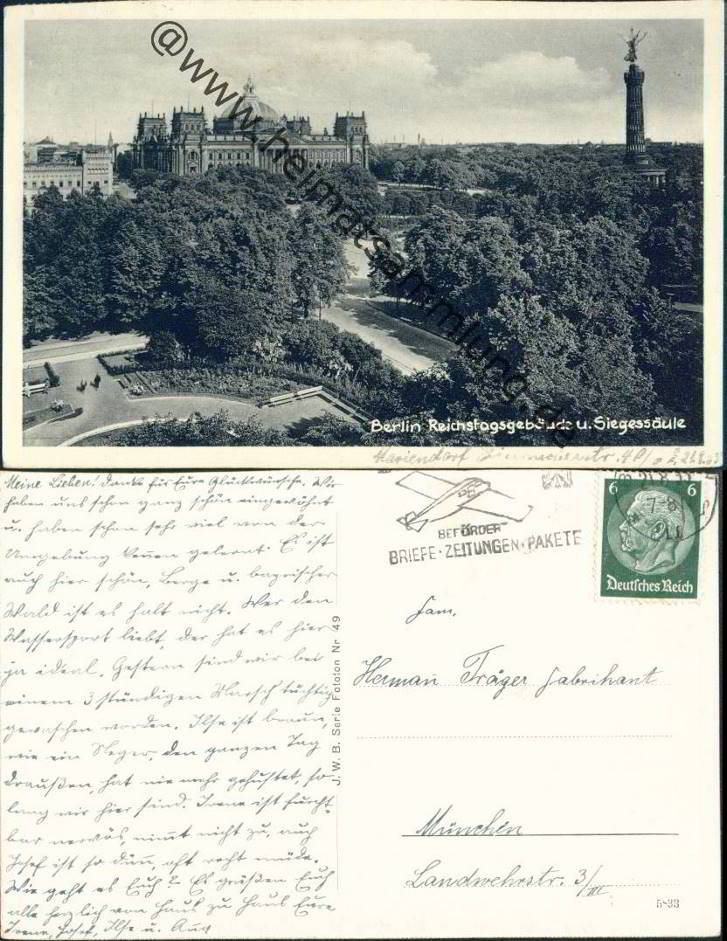 @www.heimatsammlung.de
Berlin Reichstagsgebäude u. Siegessäule
Mariendorf
Meine Lieben! Danke für Eure Glückwünsche. Wir
haben uns schon ganz schön eingewöhnt
u. haben schon sehr viel von der
Umgebung kennen gelernt. Es ist
auch hier schön, Berge u. bayrischer
Wald ist es halt nicht. Wer den
Wassersport liebt, der hat es hier
ja ideal. Gestern sind wir bei
einem 3 stündigen Marsch tüchtig
gewaschen worden. Ilse ist braun,
wie ein Neger, den ganzen Tag
draußen, hat nie mehr gehustet, so-
lang wir hier sind. Irene ist furcht-
bar nervös, nimmt nicht zu, auch
Josef ist so dünn, oft recht müde.
Wie geht es Euch? Es grüßen Euch
alle herzlich von Haus zu Haus Eure
Irene, Josef, Ilse u.
J. W. B. Serie Fototon Nr. 49
BEFÖRDER
BRIEFE·ZEITUNGEN·PAKETE
6 6
Deutsches Reich
Fam.
Herman Träger Fabrikant
München
Landwehrstr. 3/III
5-33